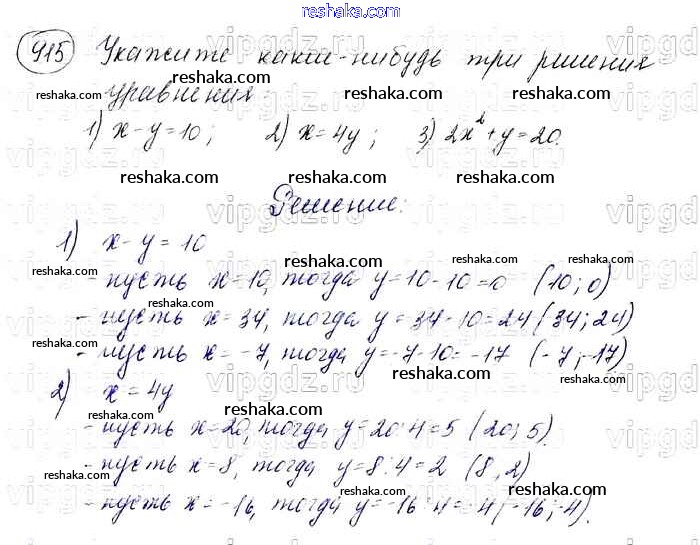 reshaka.com
915 Укажите какие-нибудь три решения
reshaka.com reshaka.com reshaka.com
уравнения:
1) x-y=10; 2) x=4y; 3) 2x²+y=20.
reshaka.com reshaka.com reshaka.com
Решение:
1) x-y=10
reshaka.com reshaka.com reshaka.com
- пусть x=10, тогда y=10-10=0 (10; 0)
reshaka.com reshaka.com
- пусть x=34, тогда y=34-10=24 (34; 24)
reshaka.com reshaka.com
- пусть x=-7, тогда y=-7-10=-17 (-7; -17)
reshaka.com
2) x=4y
reshaka.com reshaka.com
- пусть x=20, тогда y=20:4=5 (20; 5).
reshaka.com reshaka.com
- пусть x=8, тогда y=8:4=2 (8; 2)
reshaka.com reshaka.com
- пусть x=-16, тогда y=-16:4=-4 (-16; -4).
reshaka.com